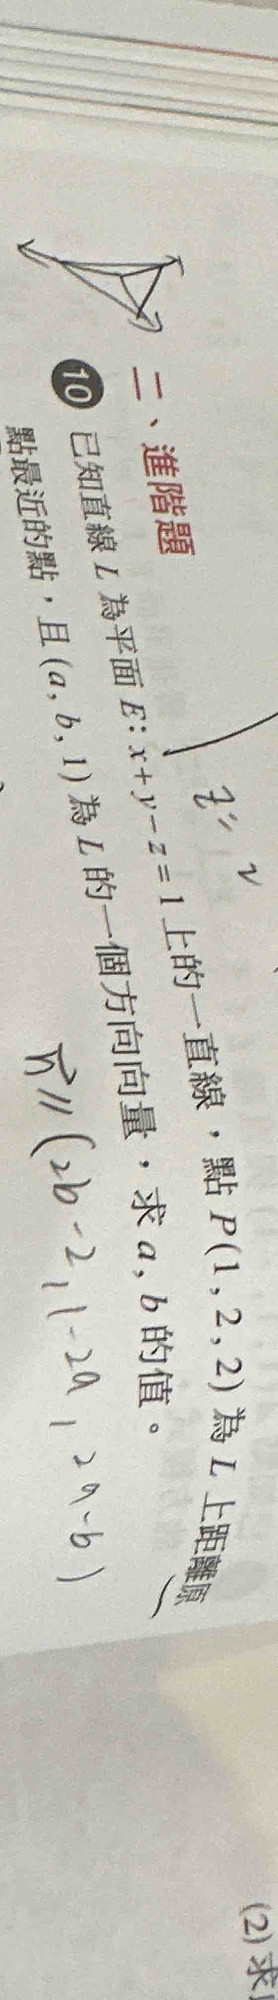 二、進階題
10 已知直線 L 為平面 E:x+y-z=1上的一直線，點 P(1,2,2) 為 L 上距離原
點最近的點，且(a,b,1)為 L 的一個方向向量，求 a,b 的值。
n // (2b-2, 1-2a, 2a-b)
(2) 求